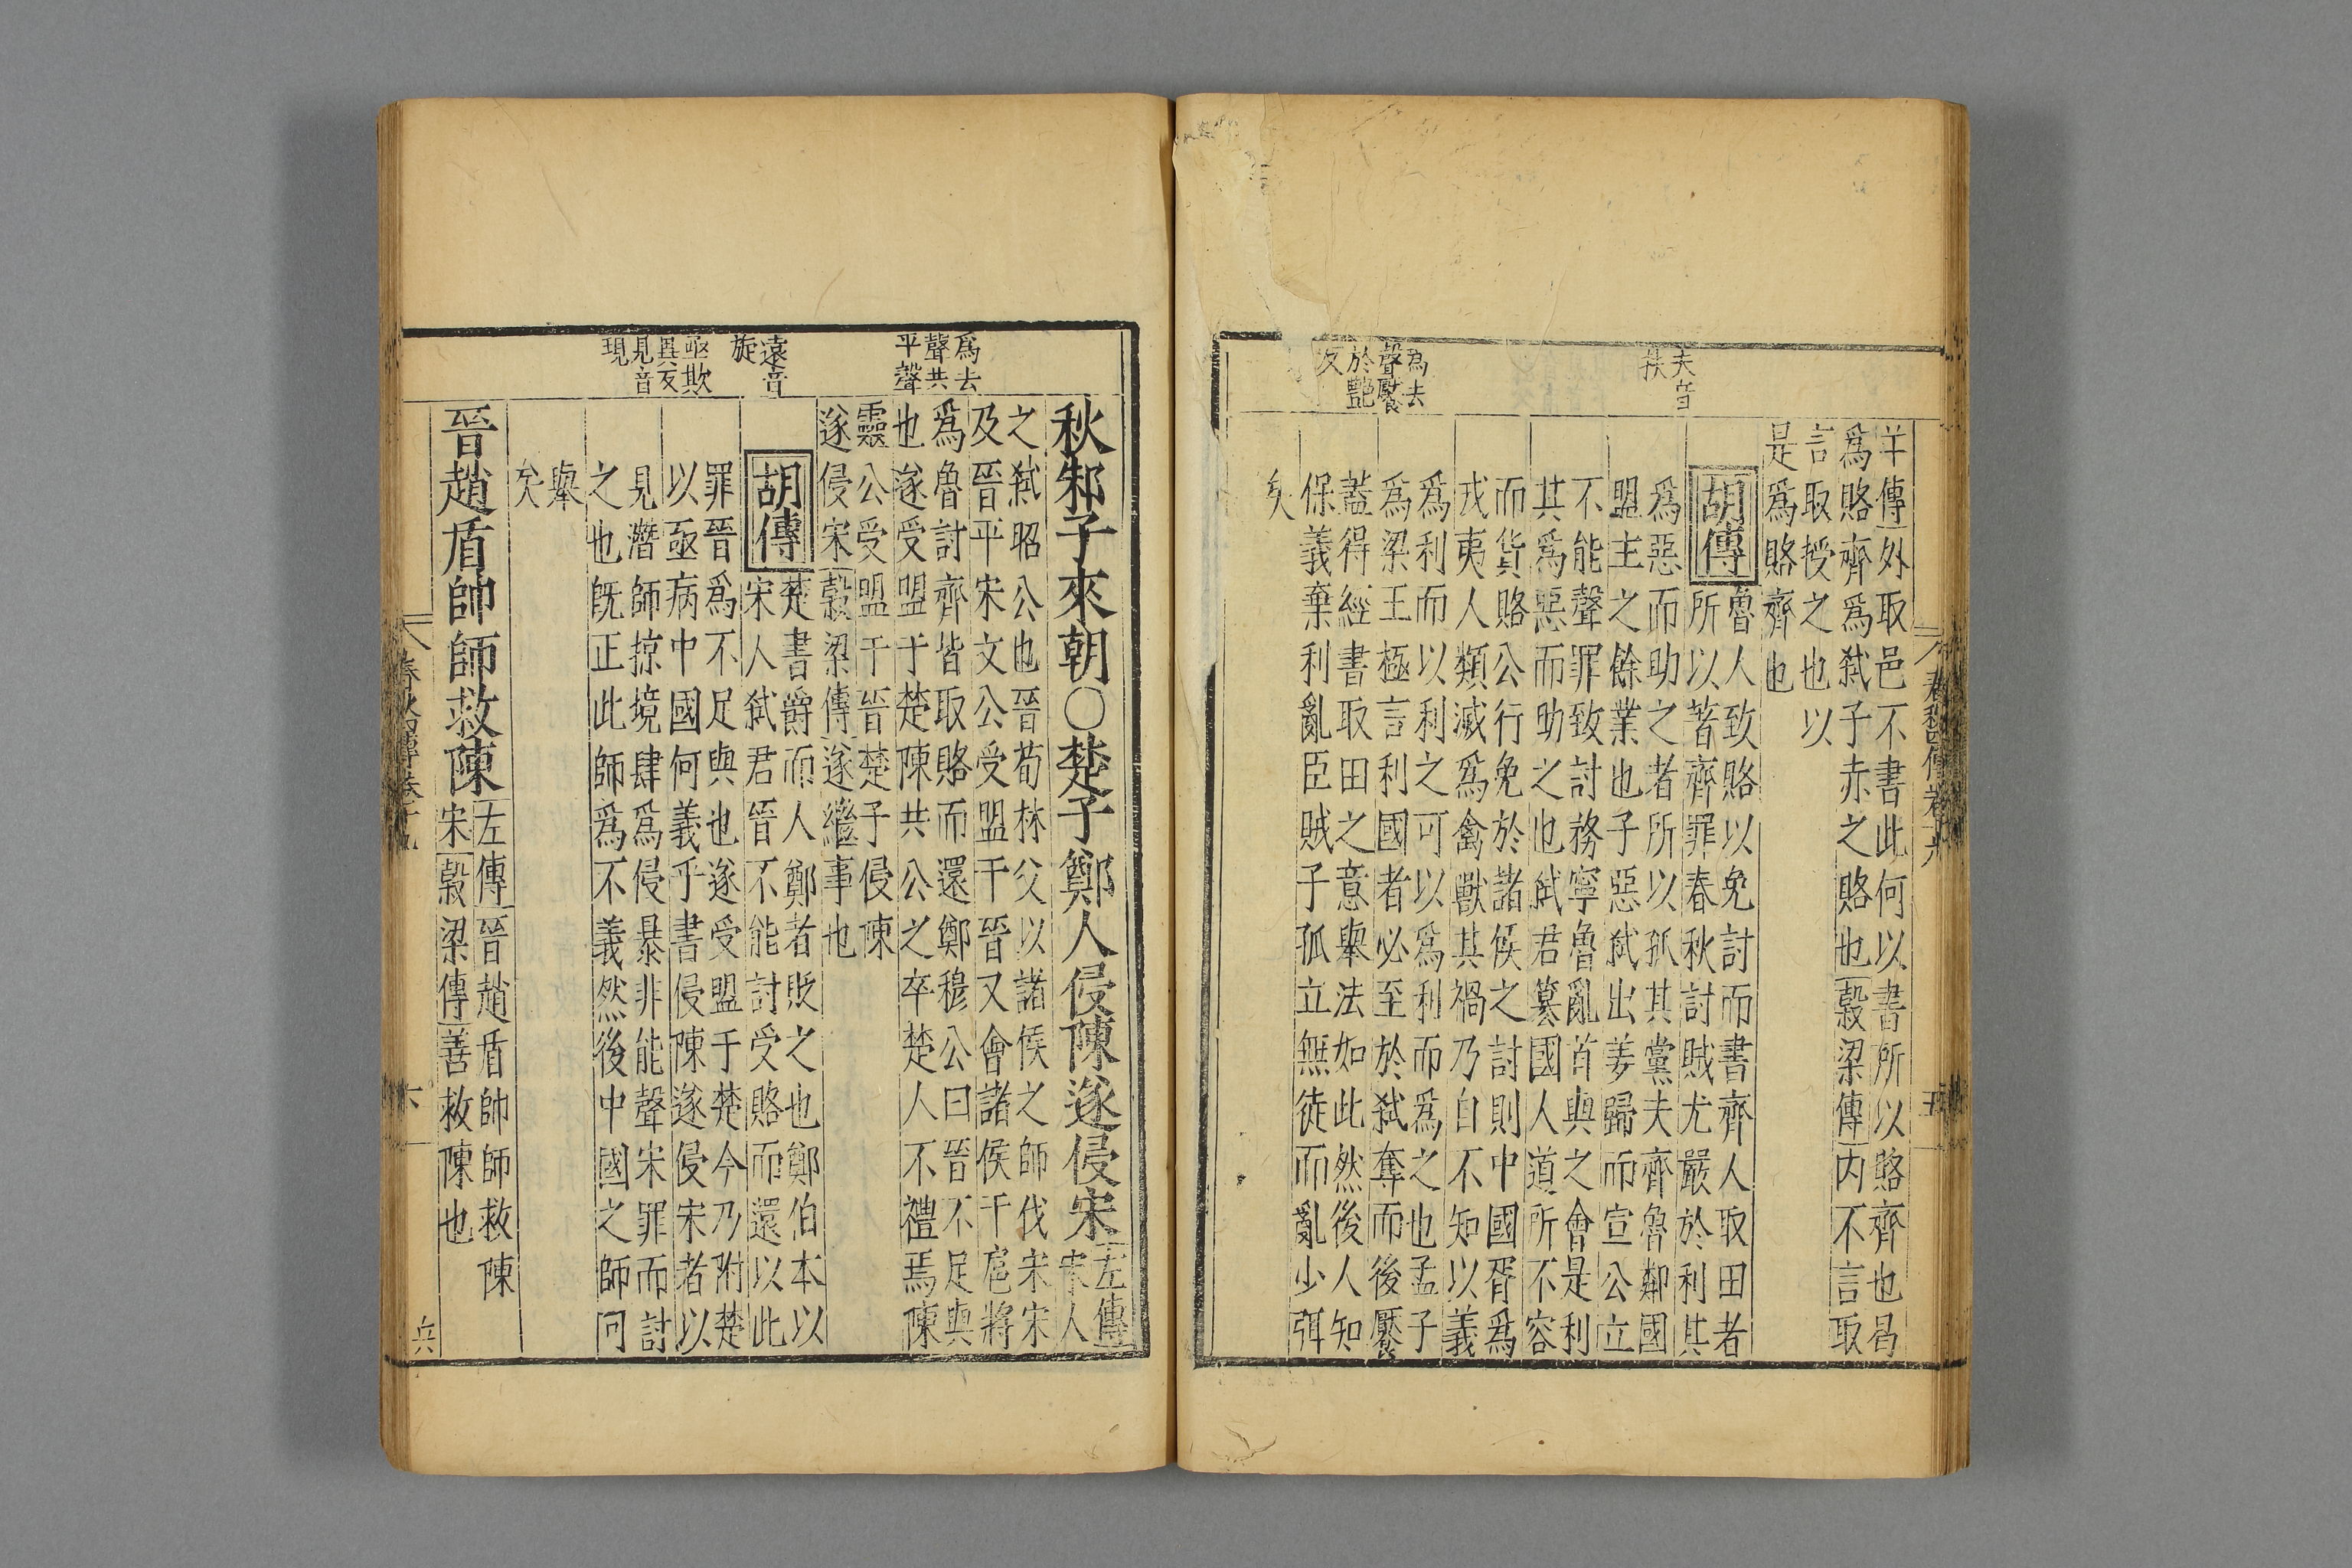 夫音
扶
為去
聲饜
於艷
反
羊傳外取邑不書此何以書所以賂齊也曷
爲賂齊爲弒子赤之賂也穀梁傳内不言取
言取授之也以
是爲賂齊也
胡傳
魯人致賂以免討而書齊人取田者
所以著齊罪春秋討賊尤嚴於利其
爲惡而助之者所以孤其黨夫齊魯鄰國
盟主之餘業也子惡弒出姜歸而宣公立
不能聲罪致討務寧魯亂首與之會是利
其爲惡而助之也弒君篡國人道所不容
而貨賂公行免於諸侯之討則中國胥爲
戎夷人類滅爲禽獸其禍乃自不知以義
爲利而以利之可以爲利而爲之也孟子
爲梁王極言利國者必至於弒奪而後饜
蓋得經書取田之意舉法如此然後人知
保義棄利亂臣賊子孤立無徒而亂少弭
矣
爲去
聲共
平聲
還音
旋
亟欺
異反
見音
現
秋邾子來朝○楚子鄭人侵陳遂侵宋
左傳
宋人
之弒昭公也晉荀林父以諸侯之師伐宋宋
及晉平宋文公受盟于晉又會諸侯于扈將
爲魯討齊皆取賂而還鄭穆公曰晉不足與
也遂受盟于楚陳共公之卒楚人不禮焉陳
靈公受盟于晉楚子侵陳
遂侵宋穀梁傳遂繼事也
胡傳
楚書爵而人鄭者貶之也鄭伯本以
宋人弒君晉不能討受賂而還以此
罪晉爲不足與也遂受盟于楚今乃附楚
以亟病中國何義乎書侵陳遂侵宋者以
見潛師掠境肆爲侵暴非能聲宋罪而討
之也既正此師爲不義然後中國之師可
舉
矣
晉趙盾帥師救陳
左傳晉趙盾帥師救陳
宋穀梁傳善救陳也